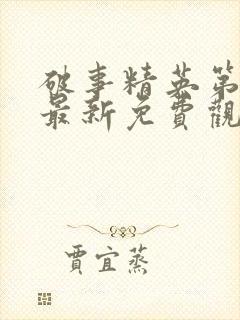 破事精英第
最新免費觀
賈宜蒸